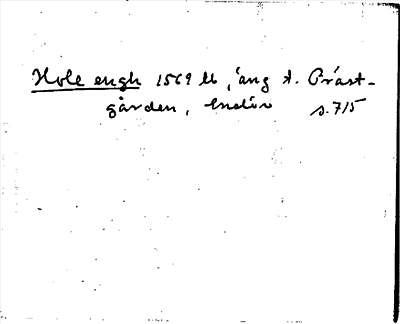 Hole engh 1569 lb, äng t. Präst-
gården, Endre s. 715